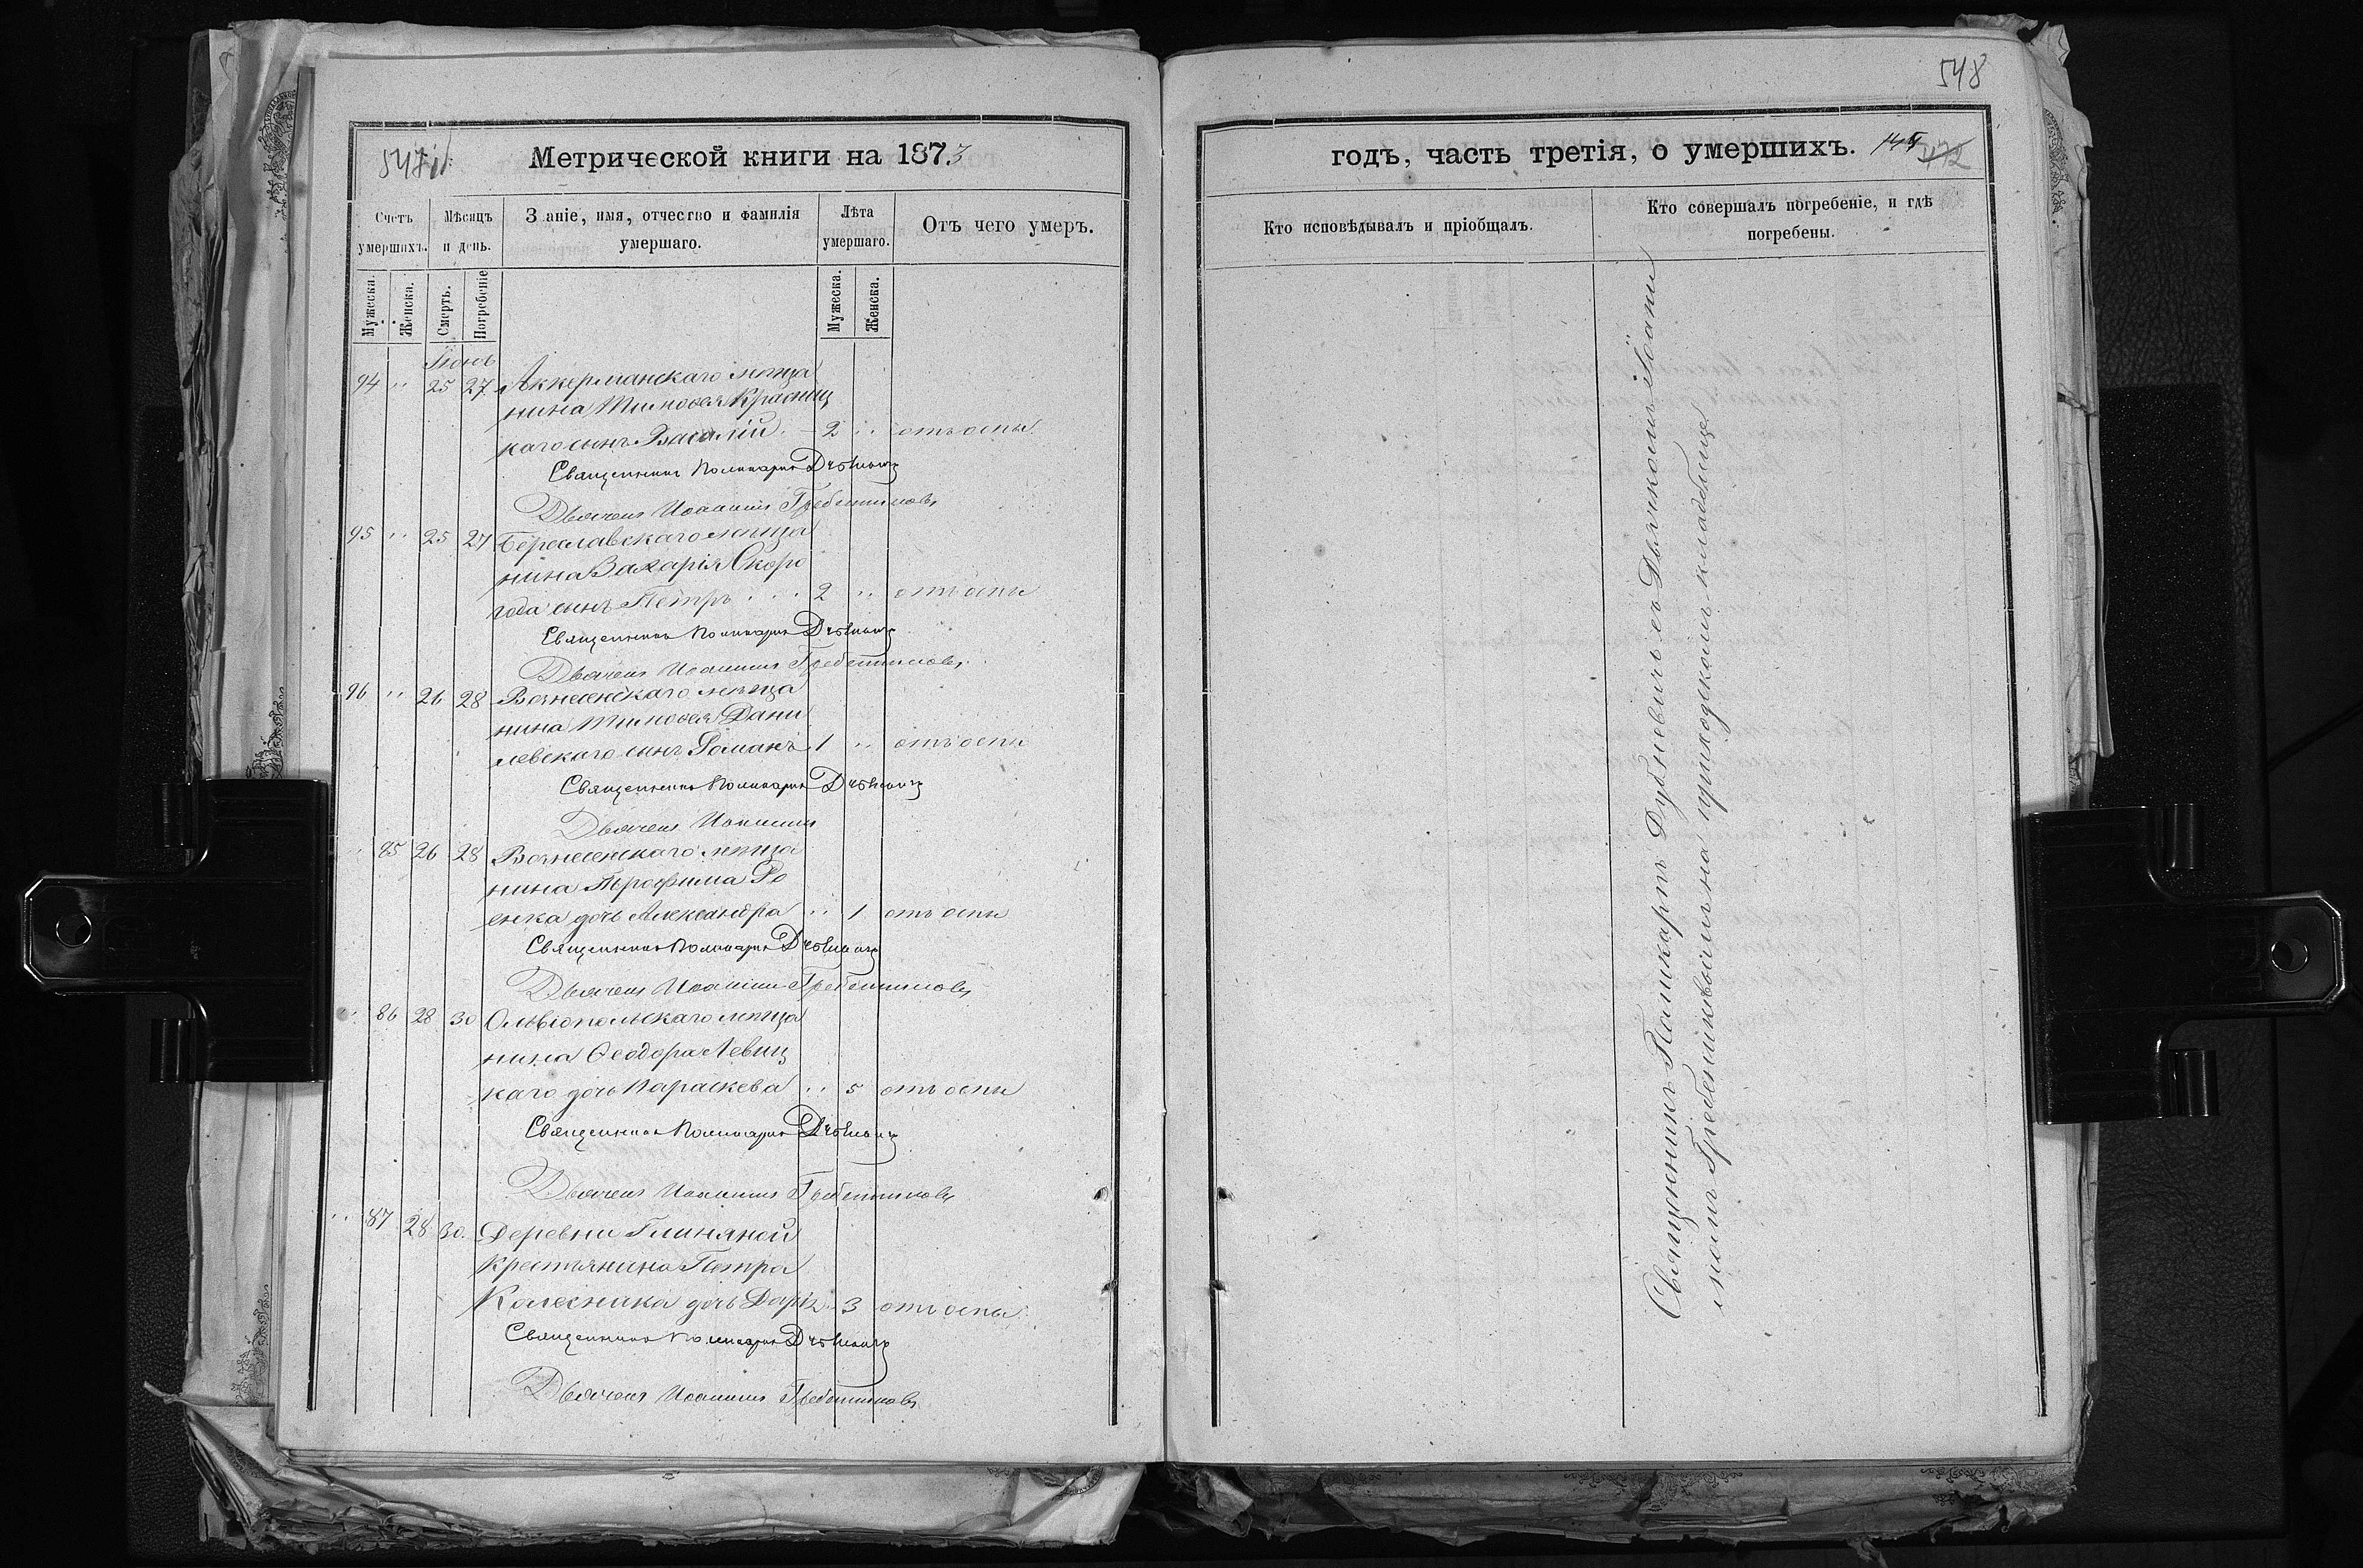 547
Метрической книги на 1873
Счетъ умершихъ.
Мѣсяцъ и день.
Званіе, имя, отчество и фамилія умершаго.
Лѣта умершаго.
Отъ чего умеръ.
Мужеска.
Женска.
Смерть.
Погребеніе
Мужеска.
Женска.
Іюнь
94 " 25 27 Аккерманскаго мѣща
нина Тимофея Красниц
каго сынъ Василій 2 " отъ оспы
Священникъ Поликарпъ
Дьячекъ Иоаннъ Гребенниковъ
95 " 25 27 Береславскаго мѣща
нина Захарія Скоро
года сынъ Петръ 2 " отъ оспы
Священникъ Поликарпъ
Дьячекъ Иоаннъ Гребенниковъ
96 " 26 28 Вознесенскаго мѣща
нина Тимофея Дани
левскаго сынъ Романъ 1 " отъ оспы
Священникъ Поликарпъ
Дьячекъ Иоаннъ
" 85 26 28 Вознесенскаго мѣща
нина Трофима
енка дочь Александра " 1 отъ оспы
Священникъ Поликарпъ
Дьячекъ Иоаннъ Гребенниковъ
" 86 28 30 Ольвіопольскаго мѣща
нина Ѳеодора Левиц
каго дочь Параскева " 5 отъ оспы
Священникъ Поликарпъ
Дьячекъ Иоаннъ Гребенниковъ
" 87 28 30. Деревни Глиняной
крестьянина Петра
Колесника дочь Дарія " 3 отъ оспы
Священникъ Поликарпъ
Дьячекъ Иоаннъ Гребенниковъ
548
годъ, часть третія, о умершихъ.
172
Кто исповѣдывалъ и пріобщалъ.
Кто совершалъ погребеніе, и гдѣ погребены.
Священникъ Поликарпъ съ Дьячкомъ Іоанн
омъ Гребенниковымъ на приходскомъ кладбищѣ